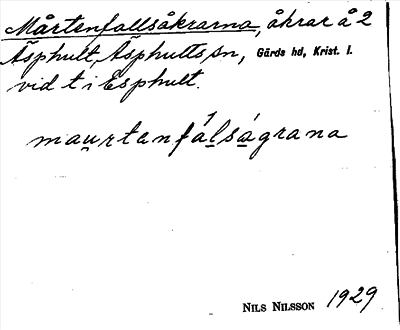 Mårtenfallsåkrarna, åkrar å 2
Äsphult, Äsphults sn, Gärds hd, Krist. l.
vid t i Esphult.
mau̯rtenfálság̣rana
NILS NILSSON 1929